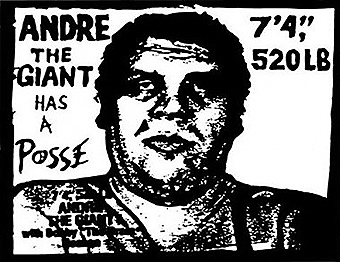 ANDRE
THE
GIANT
HAS
A
POSSE
7'4",
520 LB
ANDRE
THE GIANT
with Bobby "The